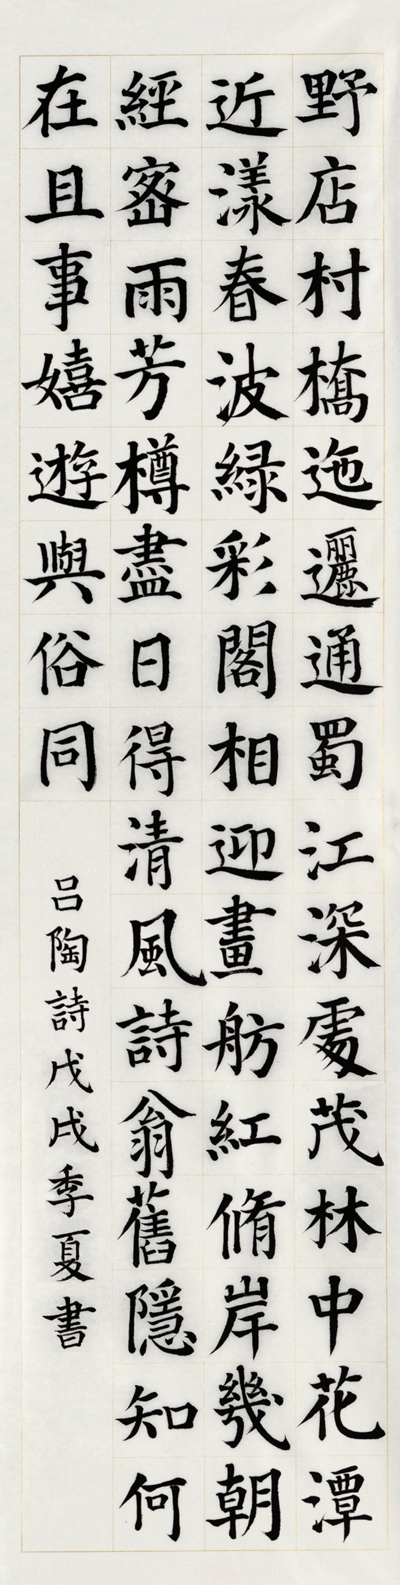 野店村橋迤邐通蜀江深處茂林中花潭
近漾春波緑彩閣相迎畫舫紅脩岸幾朝
經密雨芳樽盡日得清風詩翁舊隱知何
在且事嬉遊與俗同
吕陶詩戊戌季夏書